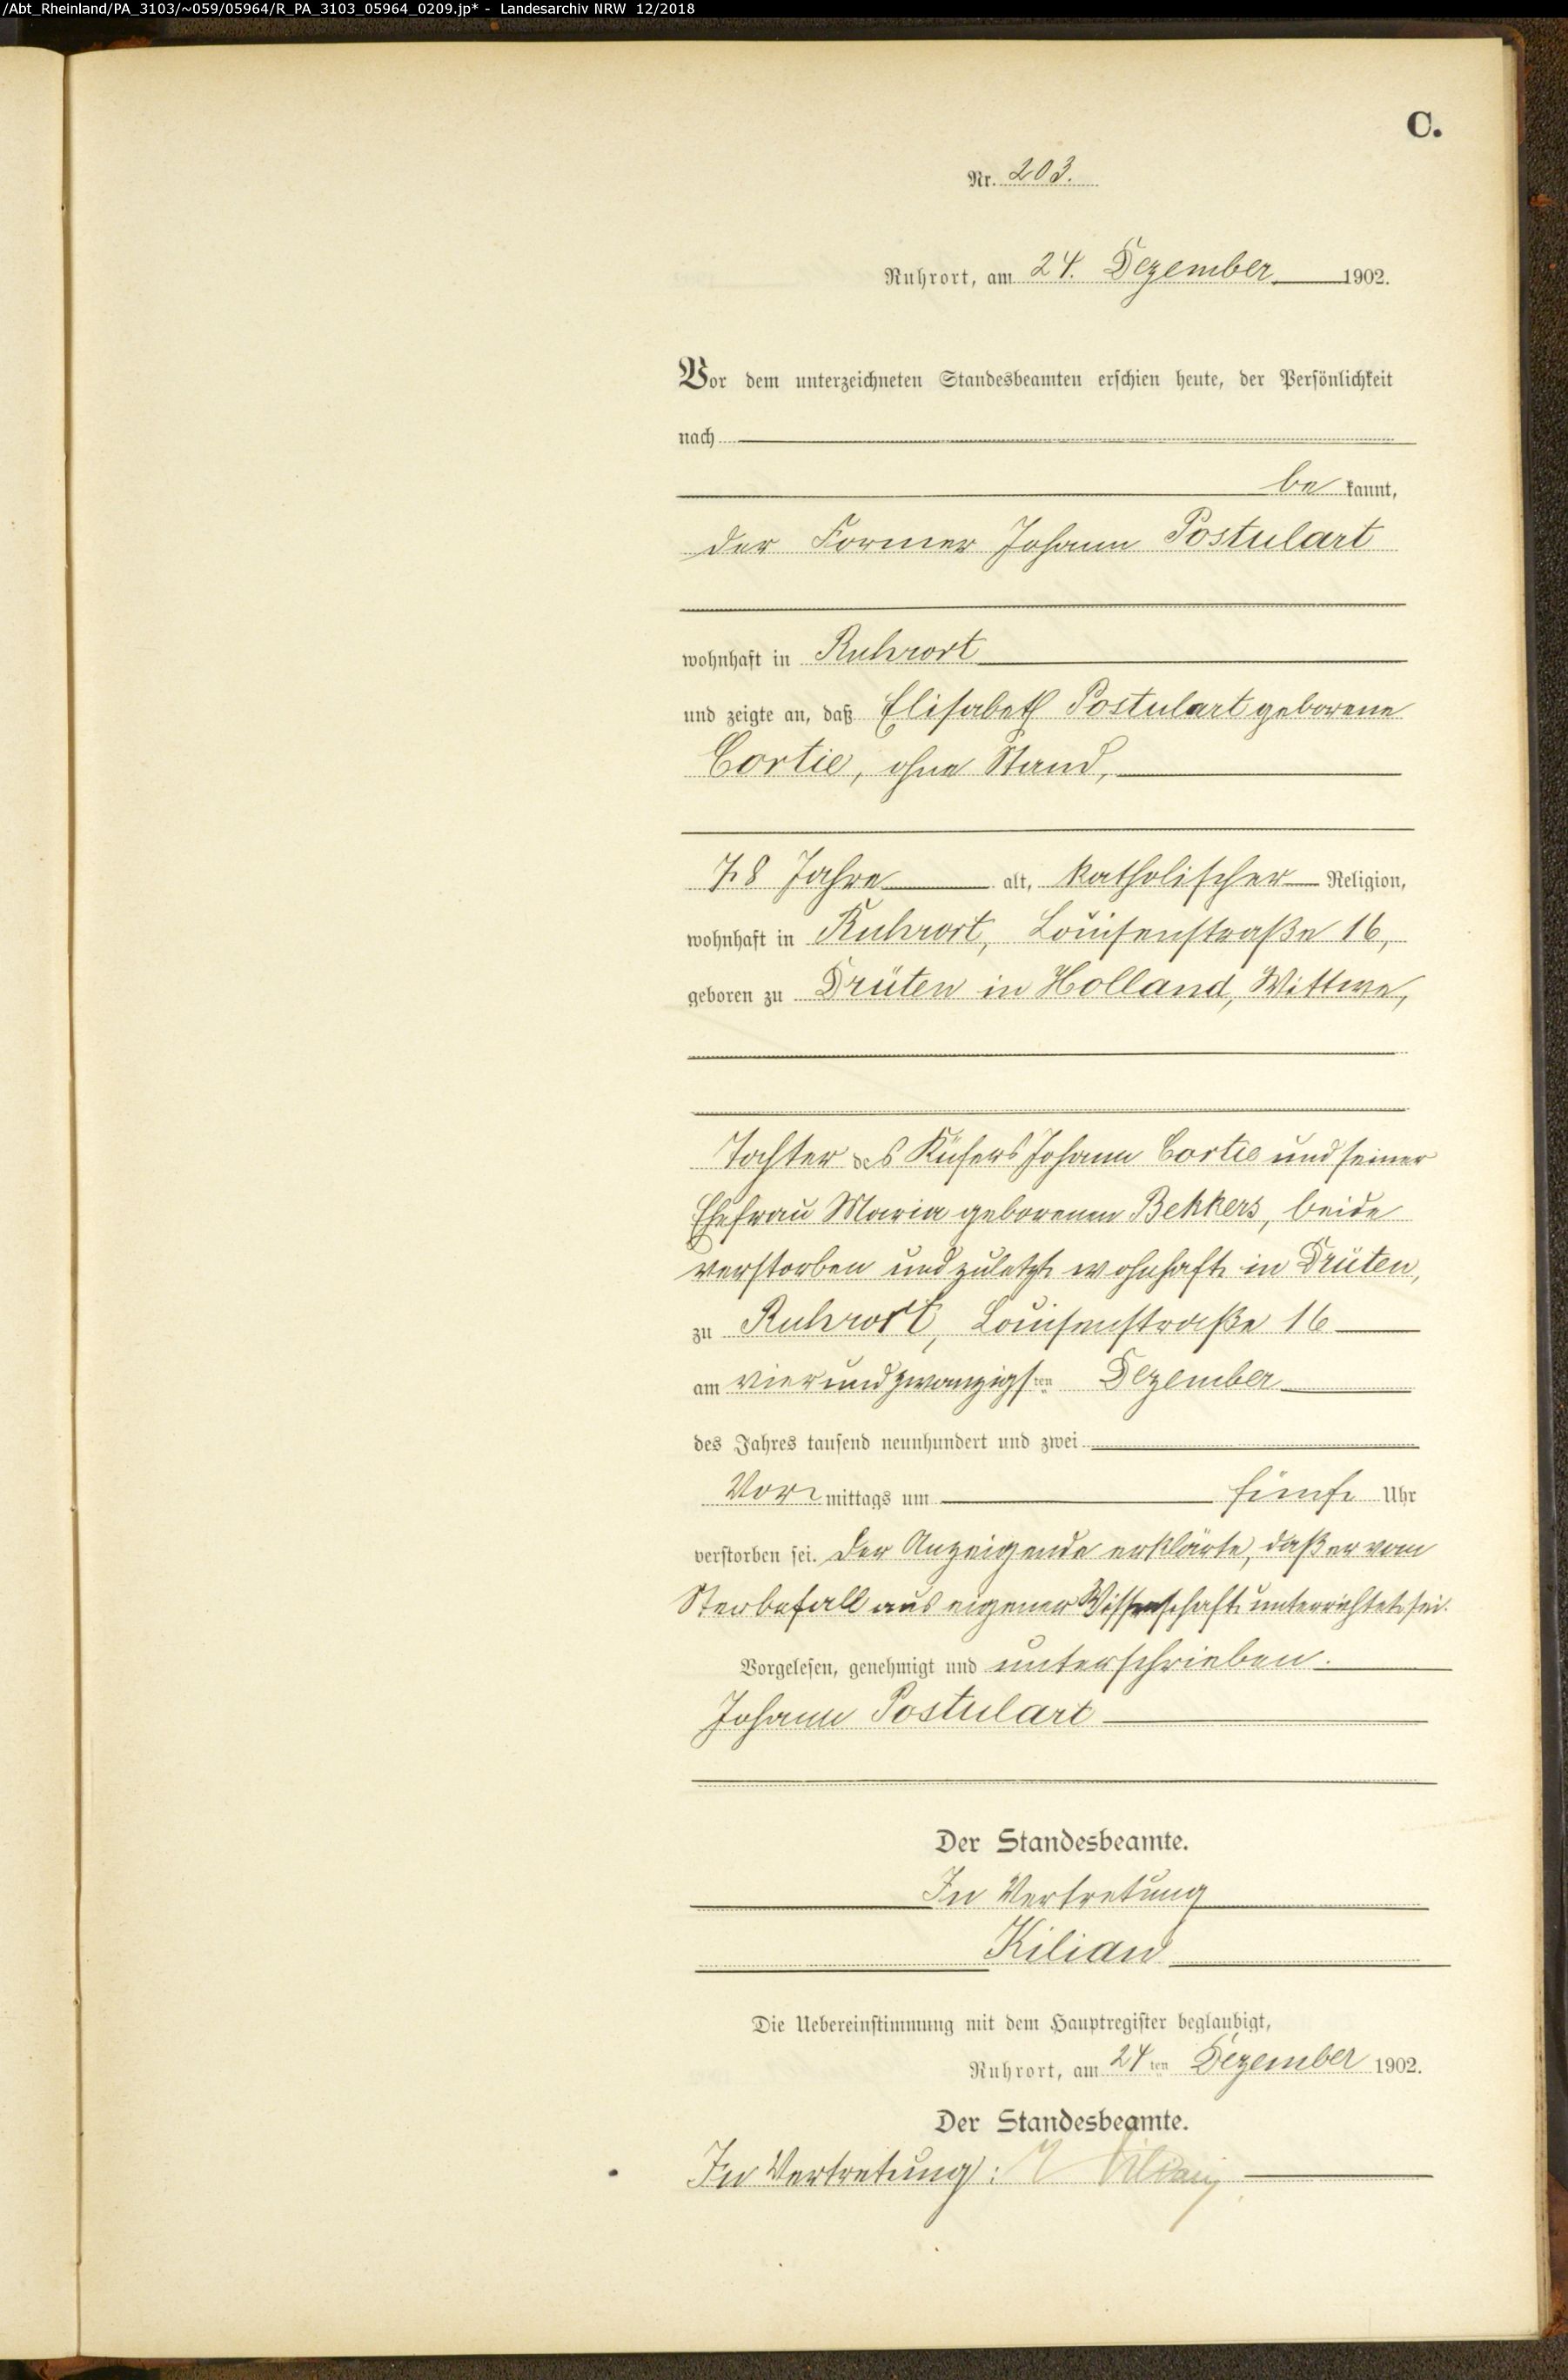 /Abt_Rheinland/PA_3103/~059/05964/R_PA_3103_05964_0209.jp* - Landesarchiv NRW 12/2018
C.
Nr. 203.
Ruhrort, am 24. Dezember 1902.
Vor dem unterzeichneten Standesbeamten erschien heute, der Persönlichkeit
nach
be kannt,
der Former Johann Postulart
wohnhaft in Ruhrort
und zeigte an, daß Elisabeth Postulart geborene
Cortie, ohne Stand,
78 Jahre alt, katholischer Religion,
wohnhaft in Ruhrort, Louisenstraße 16,
geboren zu Drüten in Holland, Wittwe,
Tochter des Küfers Johann Cortie und seiner
Ehefrau Maria geborenen Bekkers, beide
verstorben und zuletzt wohnhaft in Drüten,
zu Ruhrort, Louisenstraße 16
am vierundzwanzigsten Dezember
des Jahres tausend neunhundert und zwei
Vor mittags um fünf Uhr
verstorben sei. Der Anzeigende erklärte, daß er vom
Sterbefall aus eigener Wissenschaft unterrichtet sei.
Vorgelesen, genehmigt und unterschrieben.
Johann Postulart
Der Standesbeamte.
In Vertretung
Kilian
Die Uebereinstimmung mit dem Hauptregister beglaubigt,
Ruhrort, am 24ten Dezember 1902.
Der Standesbeamte.
In Vertretung: